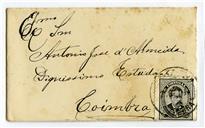 Exmo
Snr
Antonio Jose d'Almeida
Dignissimo Estudante
Coimbra